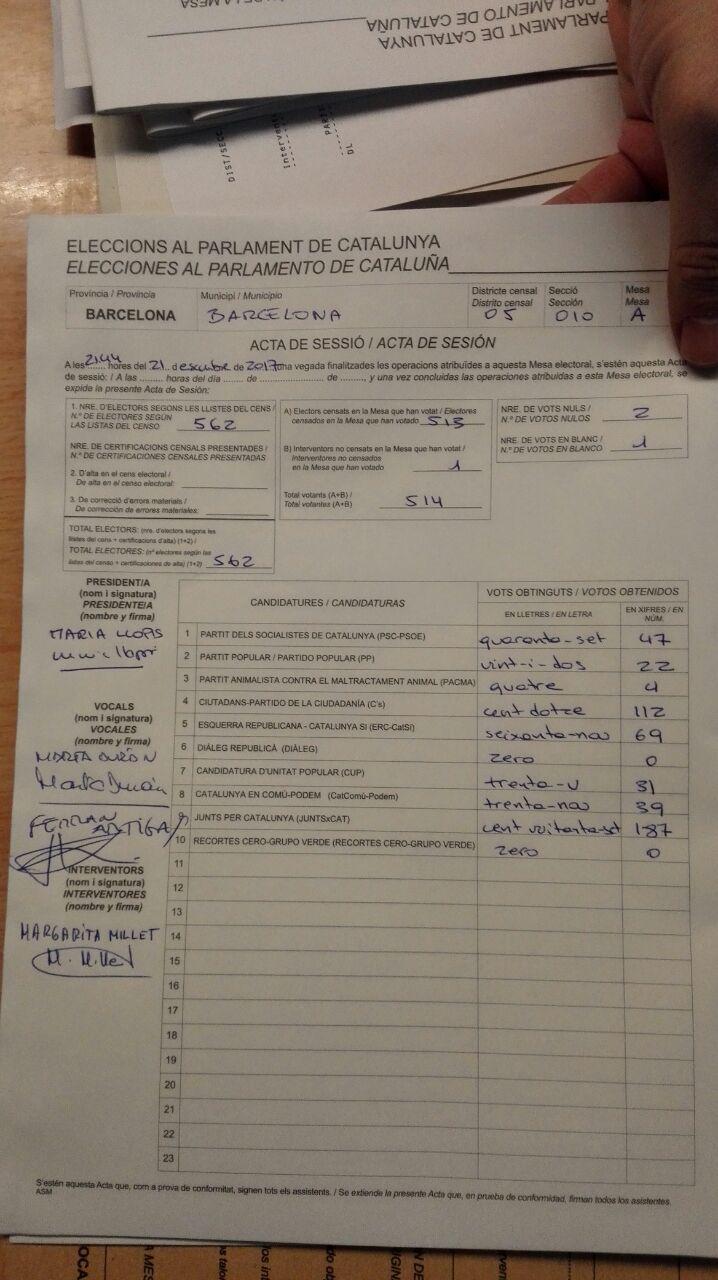 PARLAMENT DE CATALUNYA
PARLAMENTO DE CATALUÑA
DIST/SECC
Intervent
PARTI
DL
ELECCIONS AL PARLAMENT DE CATALUNYA
ELECCIONES AL PARLAMENTO DE CATALUÑA
Província / Provincia
BARCELONA
Municipi / Municipio
BARCELONA
Districte censal
Distrito censal
05
Secció
Sección
010
Mesa
Mesa
A
ACTA DE SESSIÓ / ACTA DE SESIÓN
A les 2144 hores del 21 desembre de 2017 una vegada finalitzades les operacions atribuïdes a aquesta Mesa electoral, s'estén aquesta Acta
de sessió: / A las ......... horas del día ....... de ...................... de ........, y una vez concluidas las operaciones atribuidas a esta Mesa electoral, se
expide la presente Acta de Sesión:
1. NRE. D'ELECTORS SEGONS LES LLISTES DEL CENS /
N.º DE ELECTORES SEGÚN
LAS LISTAS DEL CENSO 562
NRE. DE CERTIFICACIONS CENSALS PRESENTADES /
N.º DE CERTIFICACIONES CENSALES PRESENTADAS
2. D'alta en el cens electoral /
De alta en el censo electoral:
3. De correcció d'errors materials /
De corrección de errores materiales:
TOTAL ELECTORS: (nre. d'electors segons les
llistes del cens + certificacions d'alta) (1+2) /
TOTAL ELECTORES: (nº electores según las
listas del censo + certificaciones de alta) (1+2) 562
A) Electors censats en la Mesa que han votat / Electores
censados en la Mesa que han votado 513
B) Interventors no censats en la Mesa que han votat /
Interventores no censados
en la Mesa que han votado 1
Total votants (A+B) /
Total votantes (A+B) 514
NRE. DE VOTS NULS /
N.º DE VOTOS NULOS 2
NRE. DE VOTS EN BLANC /
N.º DE VOTOS EN BLANCO 1
PRESIDENT/A
(nom i signatura)
PRESIDENTE/A
(nombre y firma)
MARIA LLOPS
VOCALS
(nom i signatura)
VOCALES
(nombre y firma)
MARTA DURÓN
Marta Durón
FERRAN ARTIGA
INTERVENTORS
(nom i signatura)
INTERVENTORES
(nombre y firma)
MARGARITA MILLET
M. Millet
CANDIDATURES / CANDIDATURAS
VOTS OBTINGUTS / VOTOS OBTENIDOS
EN LLETRES / EN LETRA
EN XIFRES / EN NÚM.
1 PARTIT DELS SOCIALISTES DE CATALUNYA (PSC-PSOE) quaranta-set 47
2 PARTIT POPULAR / PARTIDO POPULAR (PP) vint-i-dos 22
3 PARTIT ANIMALISTA CONTRA EL MALTRACTAMENT ANIMAL (PACMA) quatre 4
4 CIUTADANS-PARTIDO DE LA CIUDADANÍA (C's) cent dotze 112
5 ESQUERRA REPUBLICANA - CATALUNYA SÍ (ERC-CatSí) seixanta-nou 69
6 DIÀLEG REPUBLICÀ (DIÀLEG) zero 0
7 CANDIDATURA D'UNITAT POPULAR (CUP) trenta-u 31
8 CATALUNYA EN COMÚ-PODEM (CatComú-Podem) trenta-nou 39
9 JUNTS PER CATALUNYA (JUNTSxCAT) cent vuitanta-set 187
10 RECORTES CERO-GRUPO VERDE (RECORTES CERO-GRUPO VERDE) zero 0
11
12
13
14
15
16
17
18
19
20
21
22
23
S'estén aquesta Acta que, com a prova de conformitat, signen tots els assistents. / Se extiende la presente Acta que, en prueba de conformidad, firman todos los asistentes.
ASM